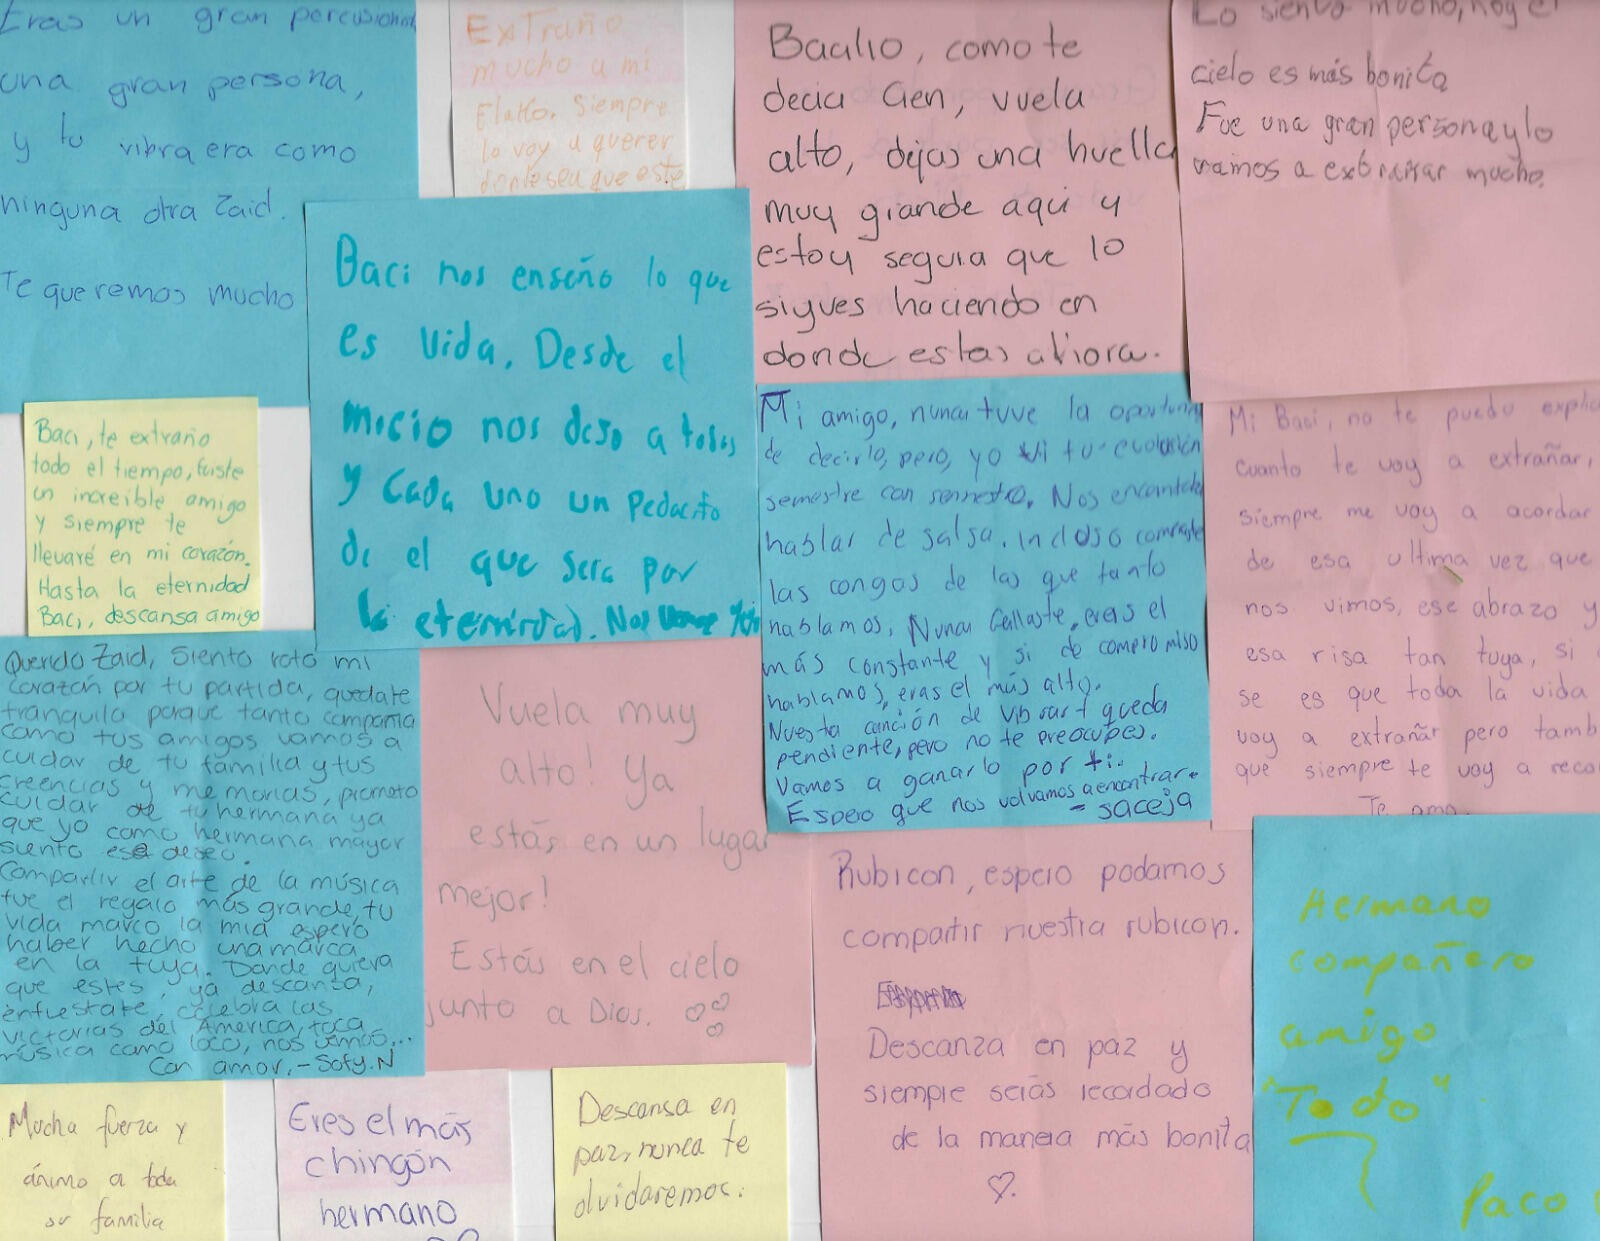 Eras un gran percusionis
una gran persona,
y tu vibra era como
ninguna otra Zaid.
Te queremos mucho
ExTraño
mucho a mi
Flakko. Siempre
lo voy a querer
donde sea que esté
Bacilio, como te
decia Gen, vuela
alto, dejas una huella
muy grande aqui y
estoy segura que lo
sigues haciendo en
donde estas ahora.
Lo siento mucho, hoy el
cielo es más bonito
Fue una gran persona y lo
vamos a extrañar mucho.
Baci nos enseño lo que
es vida. Desde el
inicio nos dejo a todos
y cada uno un pedacito
de el que sera por
la eternidad. Nos vemos
Baci, te extraño
todo el tiempo, fuiste
un increíble amigo
y siempre te
llevaré en mi corazón.
Hasta la eternidad
Baci, descansa amigo
Mi amigo, nunca tuve la oportuni
de decirlo, pero, yo vi tu evolución
semestre con semestre. Nos encantaba
hablar de salsa. Incluso compraste
las congas de las que tanto
hablamos. Nunca fallaste, eras el
más constante y si de compromiso
hablamos, eras el más alto.
Nuestra canción de Vibrart queda
pendiente, pero no te preocupes.
Vamos a ganarlo por ti.
Espero que nos volvamos a encontrar.
- saceja
Mi Baci, no te puedo explica
cuanto te voy a extrañar,
siempre me voy a acordar
de esa ultima vez que
nos vimos, ese abrazo y
esa risa tan tuya, si
se es que toda la vida
voy a extrañar pero tamb
que siempre te voy a reco
Te amo
Querido Zaid, siento roto mi
corazón por tu partida, quedate
tranquilo porque tanto compañia
como tus amigos vamos a
cuidar de tu familia y tus
creencias y memorias, prometo
cuidar de tu hermana ya
que yo como hermana mayor
siento ese deseo.
Compartir el arte de la música
fue el regalo más grande, tu
vida marco la mia espero
haber hecho una marca
en la tuya. Donde quiera
que estes, ya descansa,
enfiestate, celebra las
victorias del America, toca
música como loco, nos vemos...
Con amor, - Sofy.N
Vuela muy
alto! Ya
estás en un lugar
mejor!
Estás en el cielo
junto a Dios.
Rubicon, espero podamos
compartir nuestra rubicon.
Descanza en paz y
siempre serás recordado
de la manera más bonita
Hermano
compañero
amigo
"Todo"
Paco
Mucha fuerza y
ánimo a toda
su familia
Eres el más
chingón
hermano
Descansa en
paz, nunca te
olvidaremos.